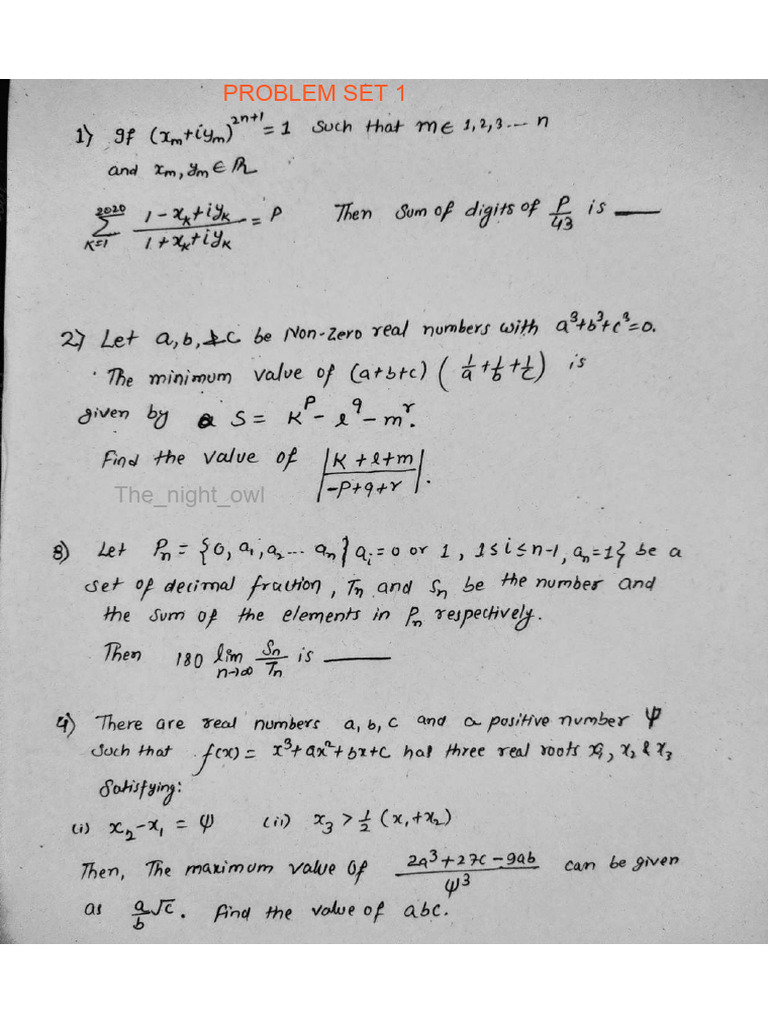 PROBLEM SET 1
1) If (xₘ+iyₘ)²ⁿ⁺¹ = 1 such that m∈ 1,2,3 --- n
and xₘ, yₘ ∈ R
∑_{K=1}^{2020} (1-x_K+iy_K)/(1+x_K+iy_K) = P Then sum of digits of P/43 is ___
2) Let a, b, & c be Non-Zero real numbers with a³+b³+c³=0.
The minimum value of (a+b+c) (1/a+1/b+1/c) is
given by S = K^p - l^q - m^r.
Find the value of |(K+l+m)/(-p+q+r)|.
The_night_owl
3) Let Pₙ = {0, a₁, a₂ --- aₙ | aᵢ=0 or 1, 1≤i≤n-1, aₙ=1} be a
set of decimal fraction, Tₙ and Sₙ be the number and
the sum of the elements in Pₙ respectively.
Then 180 lim_{n→∞} Sₙ/Tₙ is ___
4) There are real numbers a, b, c and a positive number ψ
such that f(x) = x³+ax²+bx+c has three real roots x₁, x₂ & x₃
Satisfying:
(i) x₂-x₁ = ψ (ii) x₃ > 1/2 (x₁+x₂)
Then, The maximum value of (2a³+27c-9ab)/ψ³ can be given
as a/b √c. find the value of abc.